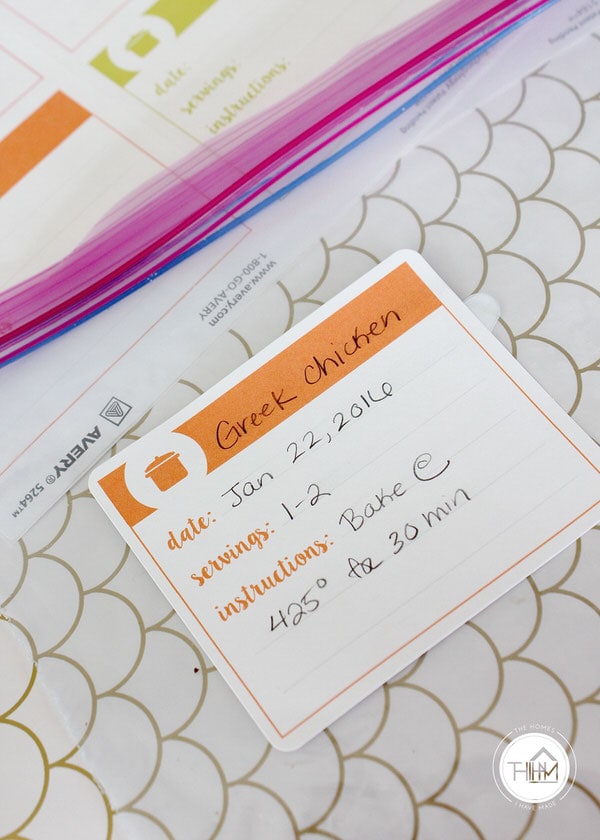 date:
servings:
instructions:
www.avery.com
1-800-GO-AVERY
AVERY® 5264™
Greek Chicken
date: Jan 22, 2016
servings: 1-2
instructions: Bake @
425° for 30 min
THE HOMES
THIHM
I HAVE MADE